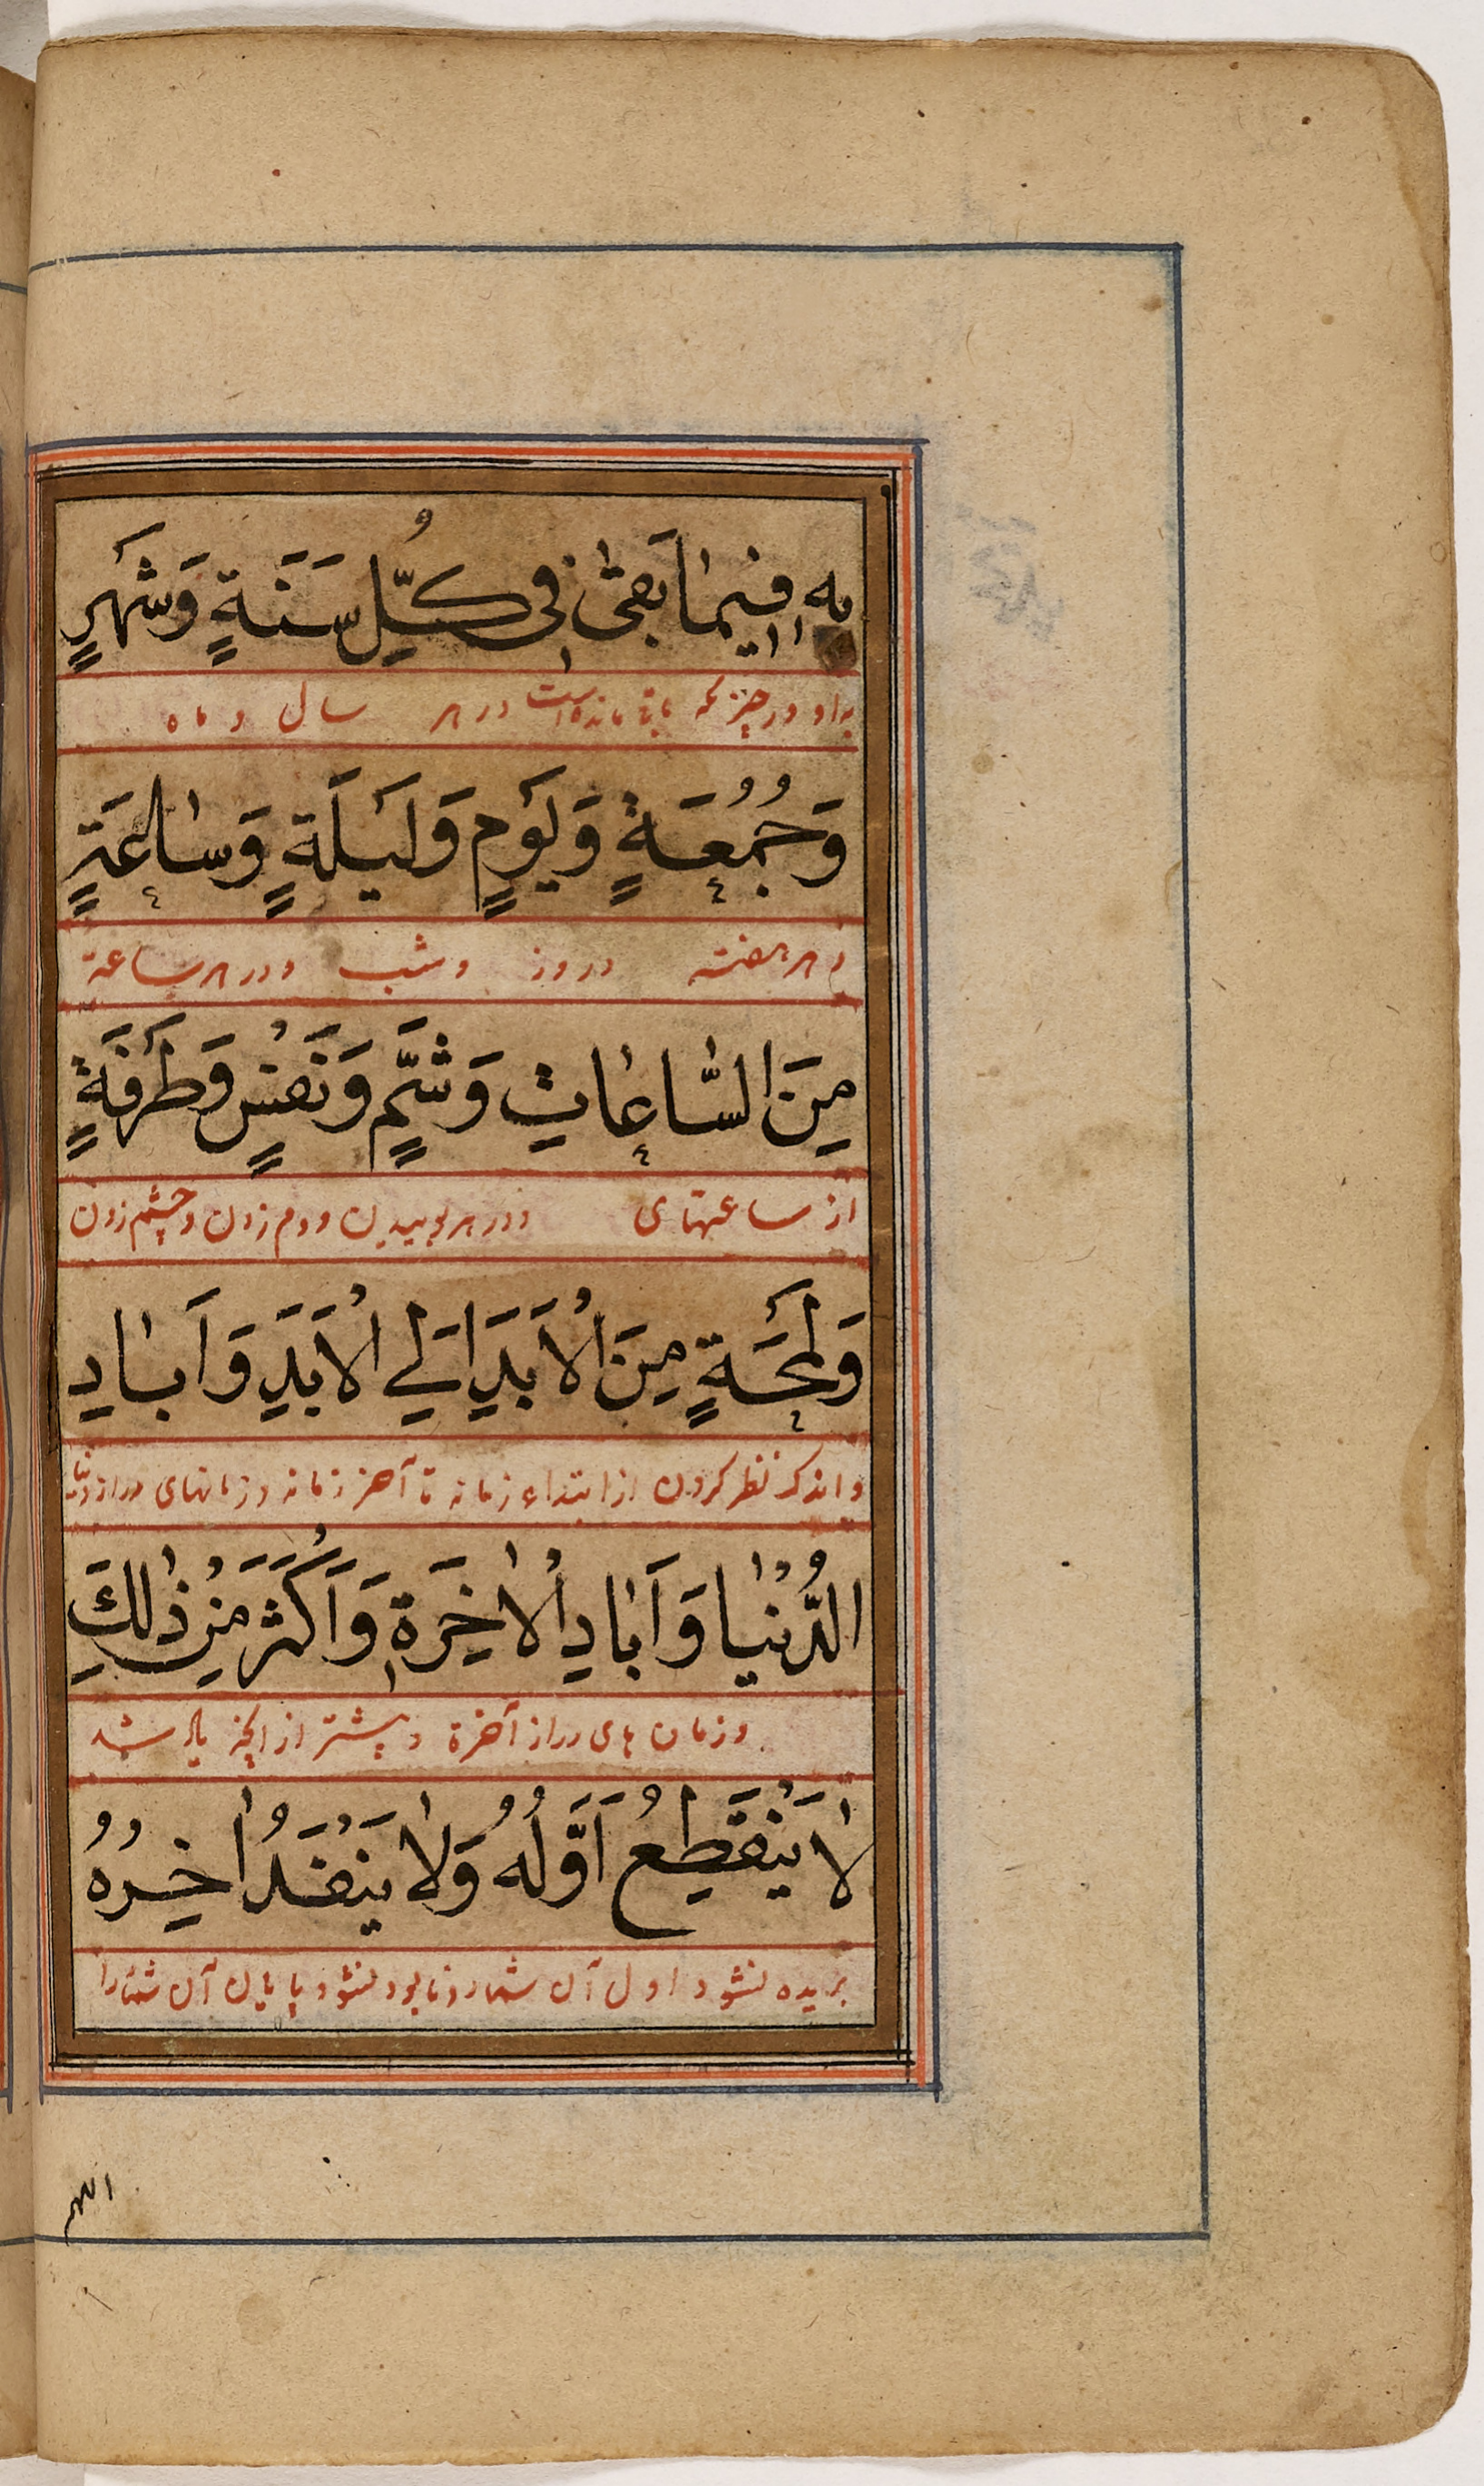 بِهِ فِيمَا بَقِيَ فِي كُلِّ سَنَةٍ وَشَهْرٍ
باو در چیز که باقی مانده است در هر سال و ماه
وَجُمُعَةٍ وَيَوْمٍ وَلَيْلَةٍ وَسَاعَةٍ
و هر هفته و روز و شب و در هر ساعة
مِنَ السَّاعَاتِ وَشَمٍّ وَنَفَسٍ وَطَرْفَةٍ
از ساعتهای و در هر بوییدن و دم زدن و چشم زدن
وَلَمْحَةٍ مِنَ الْأَبَدِ إِلَى الْأَبَدِ وَآبَادِ
و اندک نظر کردن از ابتداء زمانه تا آخر زمانه و زمانهای دراز دنیا
الدُّنْيَا وَآبَادِ الْاٰخِرَةِ وَأَكْثَرَ مِنْ ذٰلِكَ
و زمان های دراز آخرة و بیشتر از
لَا يَنْقَطِعُ أَوَّلُهُ وَلَا يَنْفَدُ اٰخِرُهُ
بریده نشود اول آن شمار و نابود نشود پایان آن شمار را
اللهم